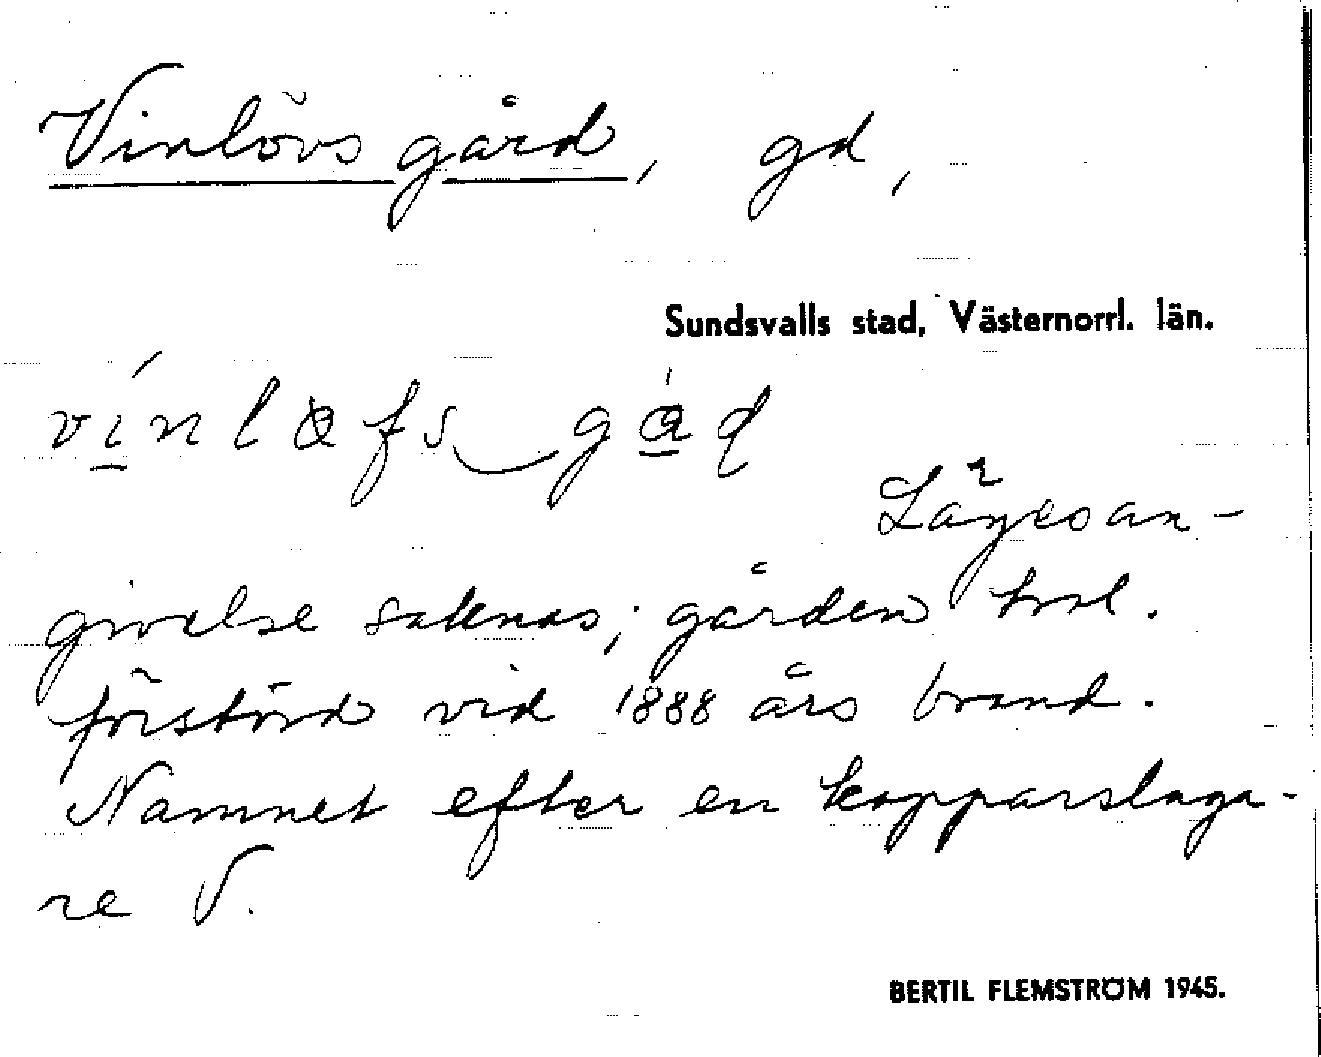 Vinlövs gård, gd,
Sundsvalls stad, Västernorrl. län.
ví̲nlöfs‿gá̲ɖ
Lägesan-
givelse saknas; gården trol.
förstörd vid 1888 års brand.
Namnet efter en kopparslaga-
re V.
BERTIL FLEMSTRÖM 1945.